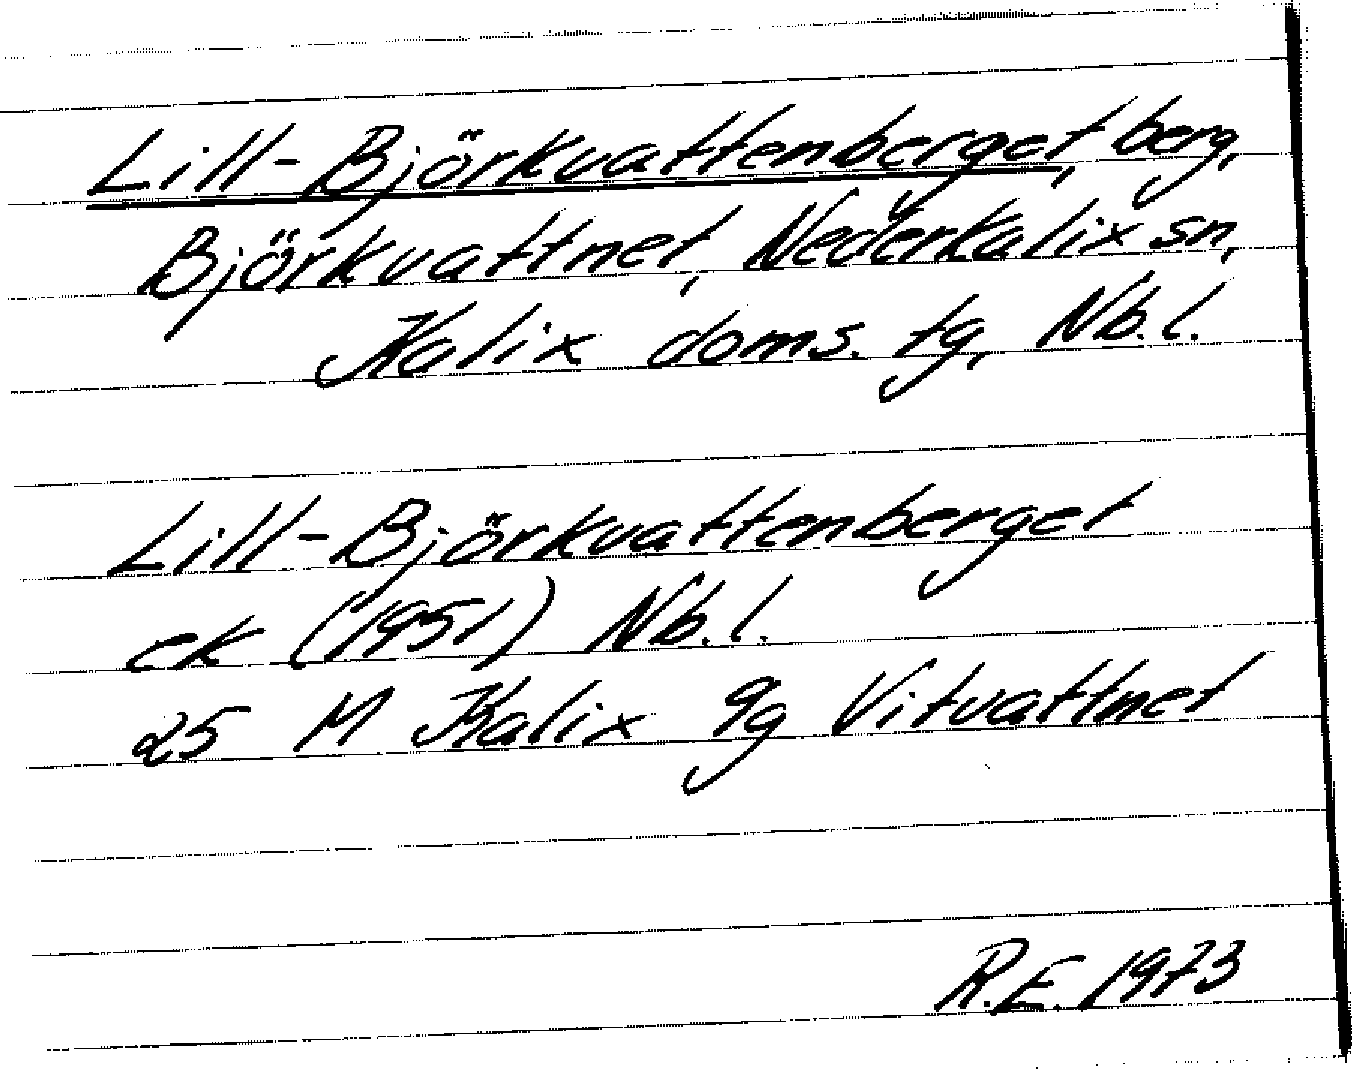 Lill-Björkvattenberget, berg,
Björkvattnet, Nederkalix sn,
Kalix doms. tg, Nb.l.
Lill-Björkvattenberget
ek (1951) Nb.l.
25 M Kalix 9g Vitvattnet
R.E. 1973